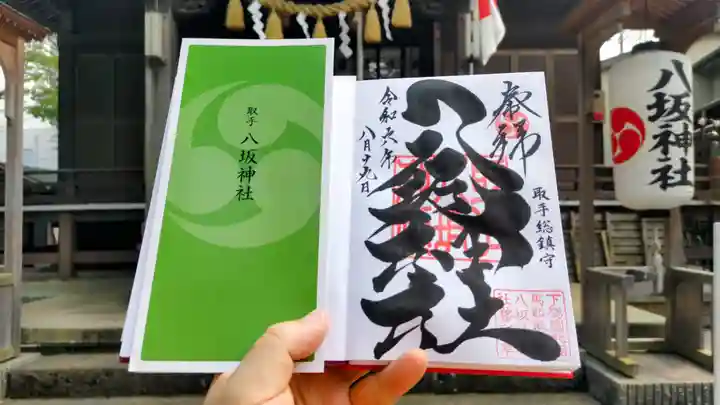 取手
八坂神社
奉拝
八坂神社
取手総鎮守
令和六年
八月十九日
八坂神社